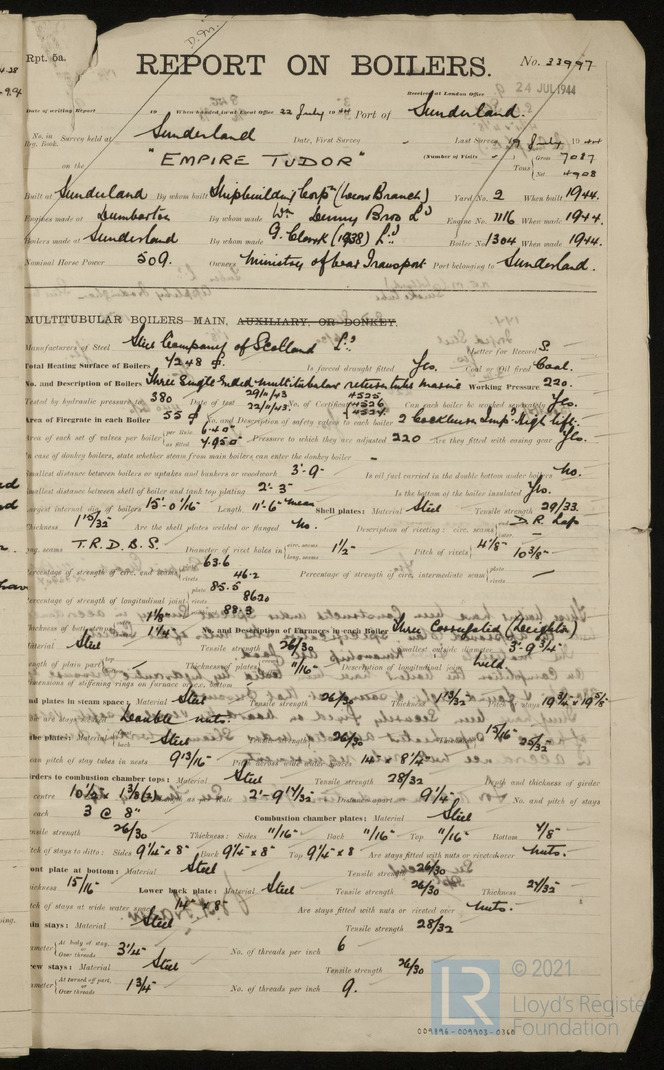 Rpt. 5a.
D.M.
REPORT ON BOILERS.
No. 33997
Received at London Office
24 JUL 1944
Date of writing Report 19 When handed in at Local Office 22 July 1944 Port of Sunderland.
No. in Reg. Book. Survey held at Sunderland Date, First Survey - Last Survey 19 July 1944
on the "EMPIRE TUDOR" (Number of Visits - ) Tons Gross 7087 Net 4908
Built at Sunderland By whom built Shipbuilding Corpn (Wear Branch) Yard No. 2 When built 1944.
Engines made at Dumbarton By whom made Wm Denny Bros Ld Engine No. 1116 When made 1944.
Boilers made at Sunderland By whom made G. Clark (1938) Ld Boiler No. 1304 When made 1944.
Nominal Horse Power 509. Owners Ministry of War Transport Port belonging to Sunderland.
MULTITUBULAR BOILERS MAIN, AUXILIARY, OR DONKEY.
Manufacturers of Steel Steel Company of Scotland Ld Letter for Record S.
Total Heating Surface of Boilers 7248 Is forced draught fitted Yes. Coal or Oil fired Coal.
No. and Description of Boilers Three Single Ended multitubular return tube marine Working Pressure 220.
Tested by hydraulic pressure to 380 Date of test 29/11/43 22/11/43. No. of Certificate 4525 4526 4524. Can each boiler be worked separately Yes.
Area of Firegrate in each Boiler 55 No. and Description of safety valves to each boiler 2 Cockburn Impd High lift.
Area of each set of valves per boiler per Rule 6.40 as fitted 7.950 Pressure to which they are adjusted 220 Are they fitted with easing gear Yes.
In case of donkey boilers, state whether steam from main boilers can enter the donkey boiler -
Smallest distance between boilers or uptakes and bunkers or woodwork 3'-9" Is oil fuel carried in the double bottom under boilers No.
Smallest distance between shell of boiler and tank top plating 2'-3" Is the bottom of the boiler insulated Yes.
Largest internal dia. of boilers 15'-0 1/16" Length 11'-6" mean Shell plates: Material Steel Tensile strength 29/33.
Thickness 1 15/32" Are the shell plates welded or flanged No. Description of riveting: circ. seams end D.R. Lap
long. seams T.R.D.B.S. Diameter of rivet holes in circ. seams long. seams 1 1/2" Pitch of rivets 4 1/8" 10 3/8"
Percentage of strength of circ. end seams plate 63.6 rivets 46.2 Percentage of strength of circ. intermediate seam plate rivets -
Percentage of strength of longitudinal joint plate 85.5 rivets 86.20 88.3
Thickness of butt straps 1 1/8 1 1/4 No. and Description of Furnaces in each Boiler Three Corrugated (Deighton)
Material Steel Tensile strength 26/30 Smallest outside diameter 3'-9 3/4"
Length of plain part Thickness of plates 11/16" Description of longitudinal joint Weld.
Dimensions of stiffening rings on furnace or c.c. bottom -
End plates in steam space: Material Steel Tensile strength 26/30 Thickness 1 13/32" Pitch of stays 19 3/4" x 19 5/8"
Double nuts.
Tube plates: Material Steel 26/30 15/16" 25/32"
Mean pitch of stay tubes in nests 9 13/16" 14" x 8 1/4"
Girders to combustion chamber tops: Material Steel Tensile strength 28/32 Depth and thickness of girder
at centre 10 1/2 x 1 3/8 (2) 2'-9 17/32" Distance apart 9 1/4" No. and pitch of stays
in each 3 @ 8" Combustion chamber plates: Material Steel
Tensile strength 26/30 Thickness: Sides 11/16" Back 11/16" Top 11/16" Bottom 7/8"
Pitch of stays to ditto: Sides 9 1/4" x 8" Back 9 1/4" x 8" Top 9 1/4" x 8 Are stays fitted with nuts or riveted over nuts.
Front plate at bottom: Material Steel Tensile strength 26/30
Thickness 15/16" Lower back plate: Material Steel Tensile strength 26/30 Thickness 27/32"
Pitch of stays at wide water space 14" x 8" Are stays fitted with nuts or riveted over nuts.
Main stays: Material Steel Tensile strength 28/32
Diameter At body of stay, or Over threads 3 1/4" No. of threads per inch 6
Screw stays: Material Steel Tensile strength 26/30
Diameter At turned off part, or Over threads 1 3/4" No. of threads per inch 9.
© 2021
Lloyd's Register
Foundation
LR
009896-009903-0360